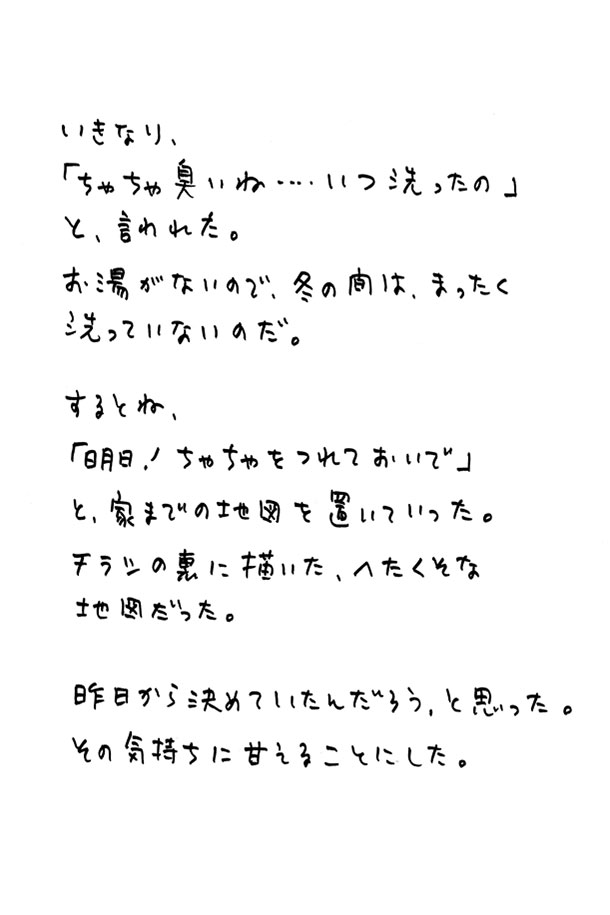 いきなり、
「ちゃちゃ臭いね‥‥いつ洗ったの」
と、言われた。
お湯がないので、冬の間は、まったく
洗っていないのだ。
するとね、
「明日！ちゃちゃをつれておいで」
と、家までの地図を置いていった。
チラシの裏に描いた、へたくそな
地図だった。
昨日から決めていたんだろう、と思った。
その気持ちに甘えることにした。